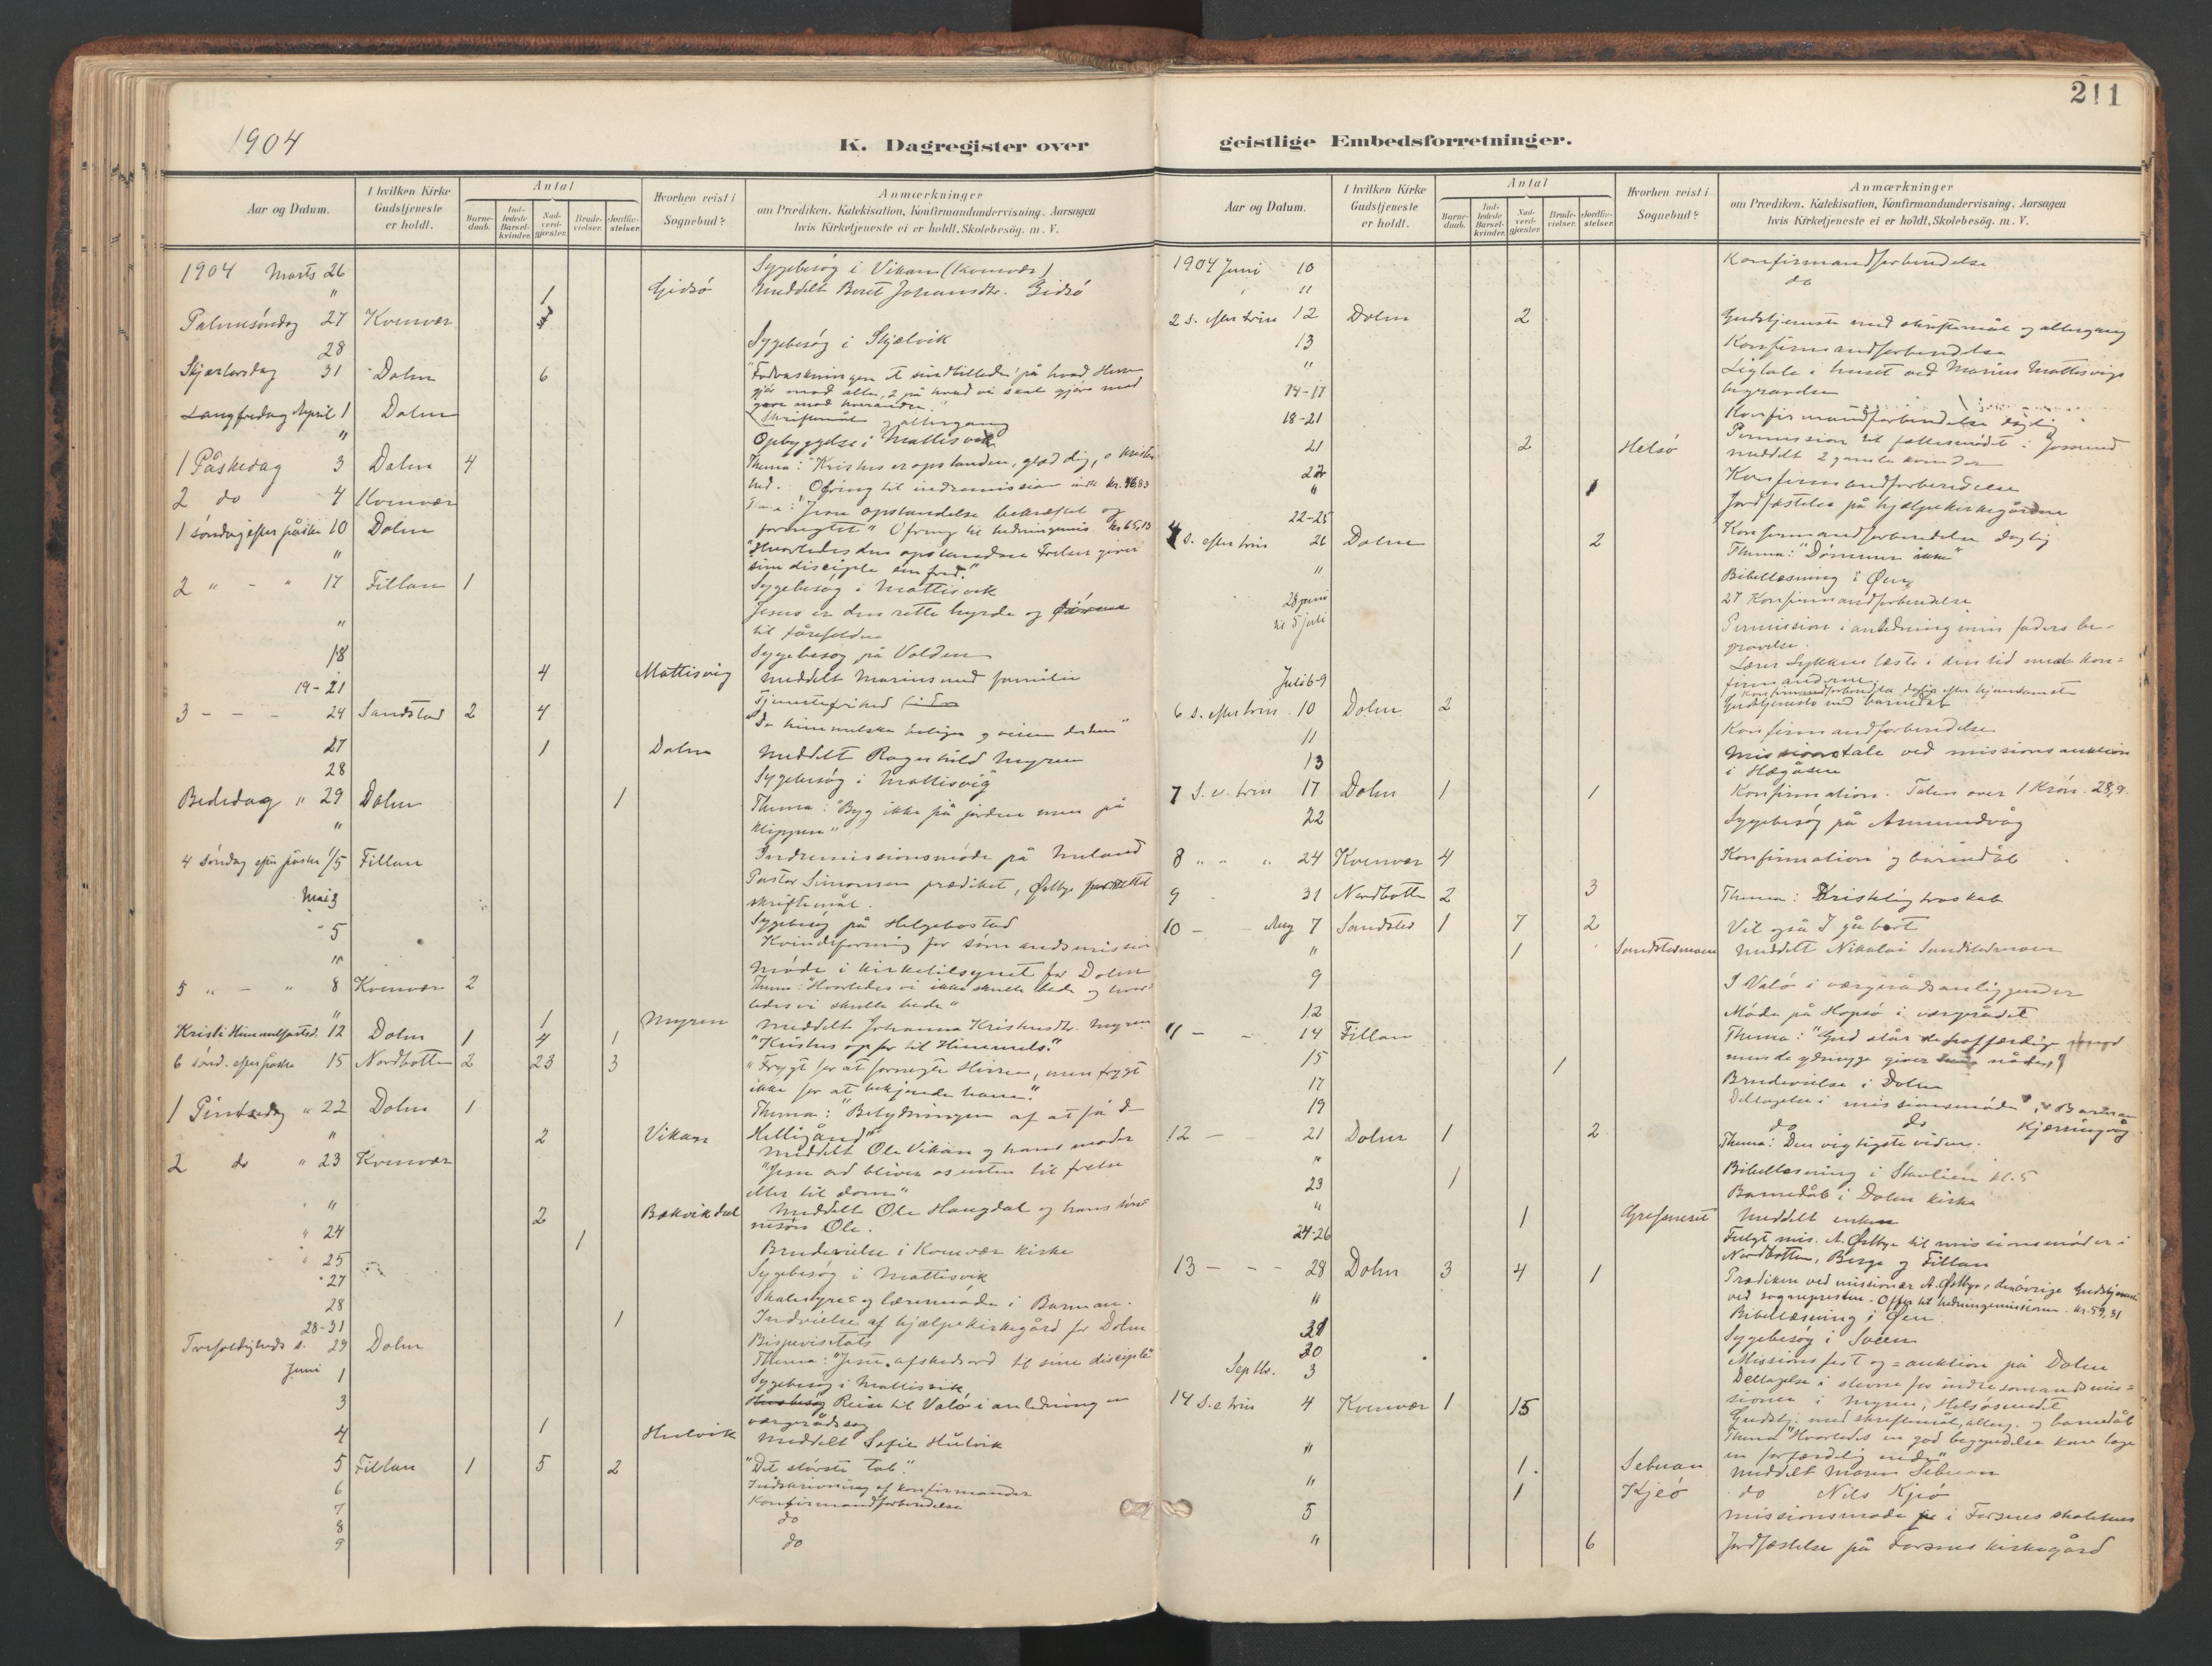 1904
K. Dagregister over
Aar og Datum.
I hvilken Kirke Gudstjeneste er holdt.
Antal
Barne-daab.
Ind-ledede Barsel-kvinder.
Nad-verd-gjester.
Brude-vielser.
Jordfæ-stelser.
Hvorhen reist i Sognebud?
Anmærkninger
om Prædiken, Katekisation, Konfirmandundervisning, Aarsagen
hvis Kirketjeneste ei er holdt, Skolebesög, m. V.
1904 Marts 26 Sygebesøg i Vikan (Kvenvær)
" 1 Gidsø Meddelt Beret Johansdtr. Gidsø
Palmesøndag 27 Kvenvær
28 Sygebesøg i Skjælvik
Skjærtorsdag 31 Dolm 6 "Fodvaskningen et sindbillede på hvad Herren
gjør mod alle, 2 på hvad vi skal gjøre mod
hverandre."
Skriftemål og altergang
Langfredag April 1 Dolm
" Opbyggelse i Mattisvik
1 Påskedag 3 Dolm 4 Thema: "Kristus er opstanden, glæd dig, o kristen
hed. Ofring til indremission kr. 46,83
2 do 4 Kvenvær Jesu opstandelse bekræftet og
fornegtet" Ofring til hedningemis. kr 65,13
1 søndag efter påske 10 Dolm "Hvorledes den opstandne Frelser giver
sine disciple sin fred."
" Sygebesøg i Mattisvik
2 " - " 17 Fillan 1 Jesus er den rette hyrde og
til fårefolden
" Sygebesøg på Volden
18 4 Mattisvig Meddelt Marius med familie
19-21 Tjenestefrihed
3 - - - 24 Sandstad 2 4 "De himmelske boliger og veien derhen"
27 1 Dolm Meddelt Ragnhild Myren
28 Sygebesøg i Mattisvig
Bededag " 29 Dolm 1 Thema: "Byg ikke på jorden men på
klippen"
" Indremissionsmøde på Meland
4 søndag efter påske 1/5 Fillan Pastor Simonsen prædiket, Østbye forrettet
skriftemål.
Mai 3 Sygebesøg på Helgebostad
" 5 Kvindeforening for sømandsmission
" Møde i kirketilsynet for Dolm
5 " - " 8 Kvenvær 2 Thema: "Hvorledes vi ikke skulle bede og hvor-
ledes vi skulle bede"
" 1 Myren Meddelt Johanna Kristensdtr. Myren
Kristi Himmelfartsd. 12 Dolm 1 4 1 "Kristus opfor til Himmels."
6 sønd. efter påske 15 Nordbotten 2 23 3 "Frygt for at fornegte Herren, men frygt
ikke for at bekjende ham."
1 Pintsedag " 22 Dolm 1 Thema: "Betydningen af at få den
Helligånd"
" 2 Vikan Meddelt Ole Vikan og hans moder
2 do " 23 Kvenvær "Jesu ord bliver os enten til frelse
eller til dom"
" 2 Bækvikdal Meddelt Ole Haugdal og hans sønne-
søn Ole.
" 24 1 Brudevielse i Kvenvær kirke
" 25 Sygebesøg i Mattisvik
" 27 Skolestyre- og lærermøde i Barman.
28 1 Indvielse af hjælpekirkegård for Dolm
28-31 Bispevisitats
Trefoldigheds s. 29 Dolm Thema: "Jesu afskedsord til sine disciple"
Juni 1 Sygebesøg i Mattisvik
3 Reise til Valø i anledning en
værgerådssag
4 1 Hulvik Meddelt Sofie Hulvik
5 Fillan 1 5 2 "Det største tab."
6 Indskrivning af konfirmander
7 Konfirmandforberedelse
8 do
9 do
211
geistlige Embedsforretninger.
Aar og Datum.
I hvilken Kirke Gudstjeneste er holdt.
Antal
Barne-daab.
Ind-ledede Barsel-kvinder.
Nad-verd-gjester.
Brude-vielser.
Jordfæ-stelser.
Hvorhen reist i Sognebud?
Anmærkninger
om Prædiken, Katekisation, Konfirmandundervisning, Aarsagen
hvis Kirketjeneste ei er holdt, Skolebesög, m. V.
1904 Juni 10 Konfirmandforberedelse
" 11 do
2 s. efter trin 12 Dolm 2 Gudstjeneste med skriftemål og altergang
13 Konfirmandforberedelse
" Ligtale i huset ved Marius Mattisvigs
begravelse
14-17
18-21 Konfirmandforberedelse daglig
Permission til fællesmødet i Jøssund
21 2 Helsø meddelt 2 gamle kvinder
22 Konfirmandforberedelse
" 1 Jordfæstelse på hjælpekirkegården
22-25 Konfirmandforberedelse daglig
4 s. efter trin 26 Dolm 2 Thema: "Dømmer ikke"
" Bibellæsning i Øen
27 Konfirmandforberedelse
28 juni til 5 juli Permission i anledning min faders be-
gravelse.
Lærer Lykken læste i den tid med kon-
firmanderne.
Juli 6-9 Konfirmandforberedelse daglig efter hjemkomsten
6 s. efter trin 10 Dolm 2 Gudstjeneste med barnedåb
11 Konfirmandforberedelse
13 Missionstale ved missionsauktion
i Hægåsen
7 s. e. trin 17 Dolm 1 1 Konfirmation. Talen over 1 Krøn. 28,9.
22 Sygebesøg på Ammundvåg
8 " " " 24 Kvenvær 4 Konfirmation og barnedåb
9 31 Nordbotten 2 3 Thema: Kristelig troskab
10 - - Aug 7 Sandstad 1 7 2 Vil også I gå bort
" 1 Sandstadmoen Meddelt Nikolai Sandstadmoen
9 I Valø i værgerådsanliggender
12 Møde på Hopsø i værgerådet
11 - - 14 Fillan Thema: "Gud står de hoffærdige imod
men de ydmyge giver han nåde"
15 1 Brudevielse i Dolm
17 Deltagelse i missionsmøde i Barman
19 do do Kjærringvåg
12 - - 21 Dolm 1 2 Thema: Den vigtigste viden.
" Bibellæsning i Stavlien kl. 5
23 1 Barnedåb i Dolm kirke
" 1 Grefsneset Meddelt enken
24-26 Fulgt mis. A. Østbye til missionsmøder i
Nordbotten, Berge og Fillan
13 - - - 28 Dolm 3 4 1 Prædiken ved missionær A. Østbye, den øvrige Gudstjeneste
ved sognepresten. Offer til hedningemissionen kr. 59,31
" Bibellæsning i Øen
Sygebesøg i Sveen
30 Missionsfest og = auktion på Dolm
Septbr. 3 Deltagelse i stevne for indre sømandsmis-
sionen i Myren, Helsøsundet
14 s. e trin 4 Kvenvær 1 15 Gudstj. med skriftemål, alterg. og barnedåb
Thema "Hvorledes en god begyndelse kan tage
en forfærdelig ende"
" 1. Sebuan Meddelt Maren Sebuan
" 1 Kjeø do Nils Kjeø
5 missionsmøde i Forsnes skolehus
" 6 Jordfæstelse på Forsnes kirkegård